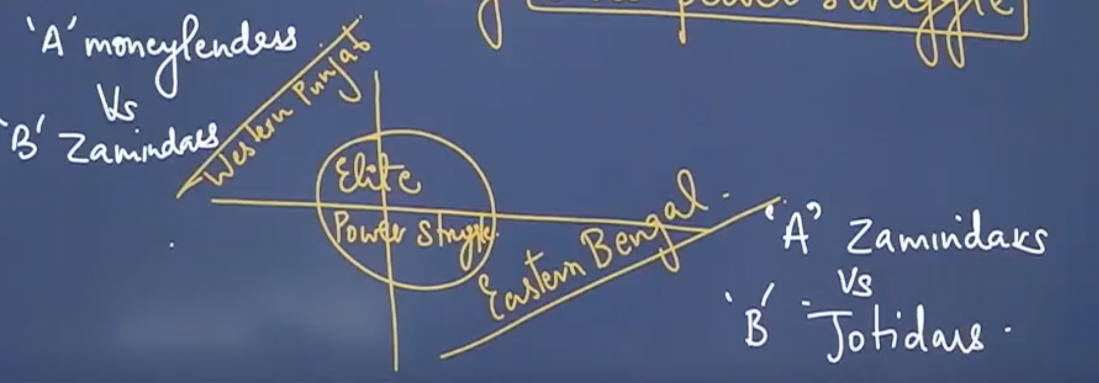 power struggle
'A' moneylenders
Vs
'B' Zamindars
Western Punjab
Elite
Power Struggle
Eastern Bengal.
'A' Zamindars
Vs
'B' Jotidars.